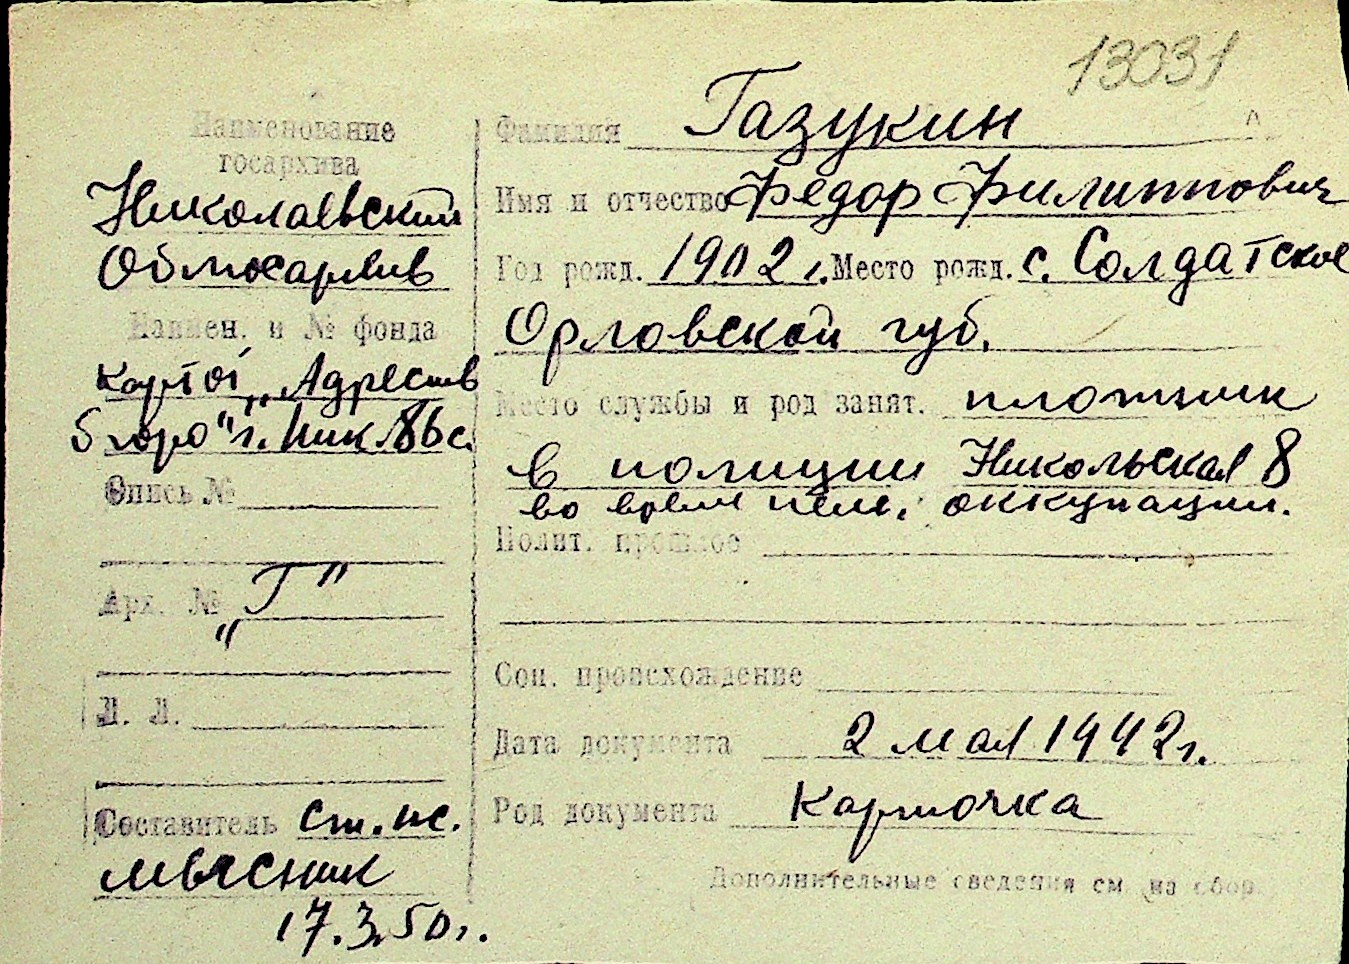 13031
Наименование
госархива
Николаевский
Облгосархив
Наимен. и № фонда
"Адресн.
бюро" г.
Опись №
Арх. № "Г"
Л. Л.
Составитель ст. нс.
Мясник
17.3.50г.
Фамилия Газукин
Имя и отчество Федор Филиппович
Год рожд. 1902 г. Место рожд. с. Солдатское
Орловской губ.
Место службы и род занят. плотник
в полиции Никольская 8
во время нем. оккупации.
Полит. прошлое
Соц. происхождение
Дата документа 2 мая 1942г.
Род документа Карточка
Дополнительные сведения см. на обор.